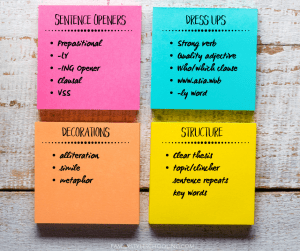 SENTENCE OPENERS
Prepositional
-LY
-ING Opener
Clausal
VSS
DRESS UPS
Strong verb
Quality adjective
Who/which clause
www.asia.wub
-ly word
DECORATIONS
alliteration
simile
metaphor
STRUCTURE
clear thesis
topic/clincher
sentence repeats
key words